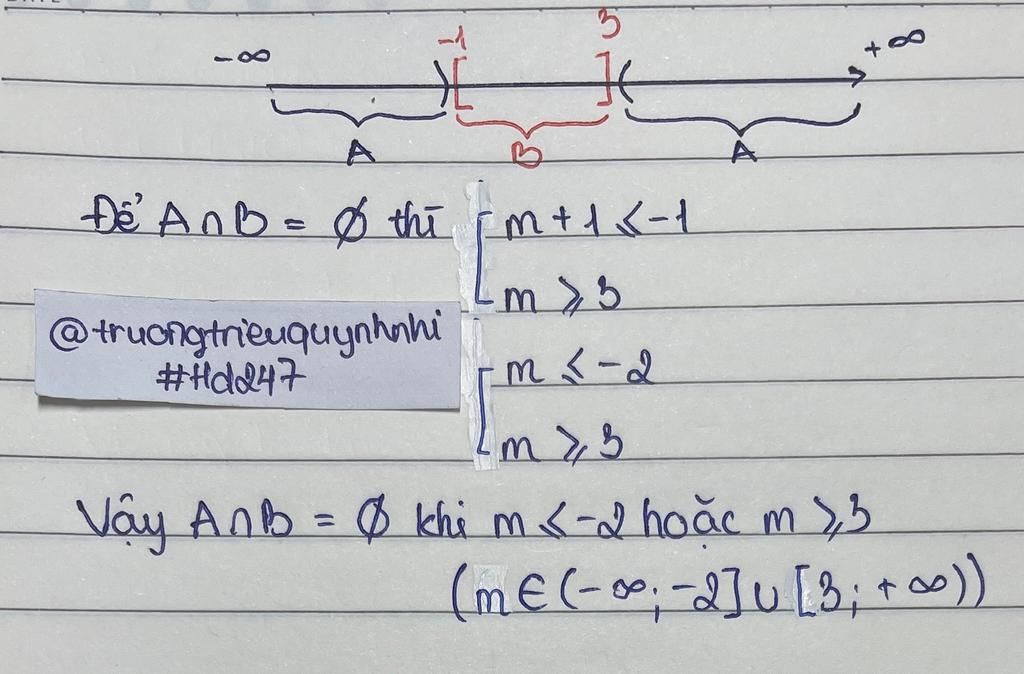 -∞ -1 3 +∞
) [ ] (
A B A
Để A∩B = ∅ thì [ m + 1 ⩽ -1
m ⩾ 3
@truongtrieuquynhnhi
#Hd247
[ m ⩽ -2
m ⩾ 3
Vậy A∩B = ∅ khi m ⩽ -2 hoặc m ⩾ 3
(m ∈ (-∞; -2] ∪ [3; +∞))